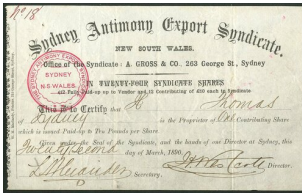 No 18
Sydney Antimony Export Syndicate,
NEW SOUTH WALES.
Office of the Syndicate: A. GROSS & CO., 263 George St., Sydney
IN TWENTY-FOUR SYNDICATE SHARES
SYDNEY
N.S. WALES
This Is to Certify that H Thomas
of Sydney is the Proprietor of One Contributing Share
which is issued Paid-up to Ten Pounds per Share.
Given under the Seal of the Syndicate, and the hands of our Director at Sydney, this
Twenty second day of March, 1890.
Secretary. Director.